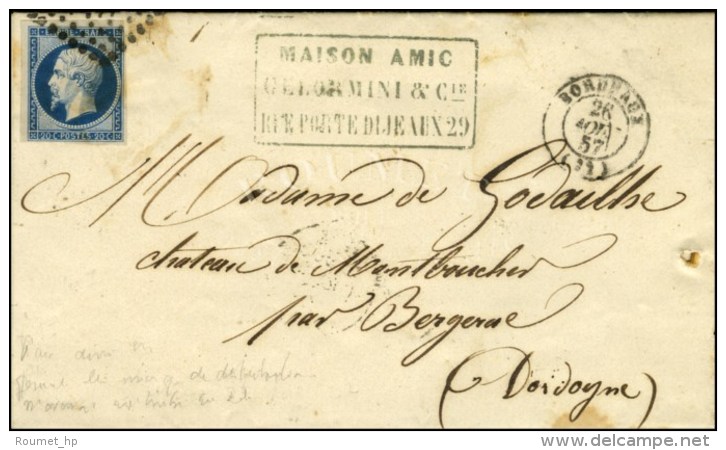 MAISON AMIC
GELORMINI & Cie
RUE PORTE DIJEAUX 29
BORDEAUX
26
AOUT
57
(32)
20 C POSTES 20 C
Madame de Godailhe
chateau de Montboucher
par Bergerac
(Dordogne)
Roumet_hp
©delcampe.net